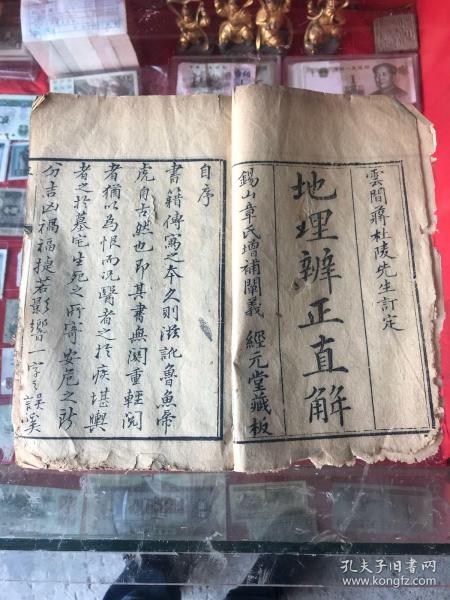 雲間蔣杜陵先生訂定
地理辨正直解
錫山章氏增補闡義 經元堂藏板
自序
書籍傳寫之本久則滋訛魯魚帝
虎自古然也即其書無關重輕閱
者猶以為恨而况醫者之於疾堪輿
者之於墓宅生死之所寄安危之所
分吉凶禍福捷若影響一字之誤
孔夫子旧书网
www.kongfz.com